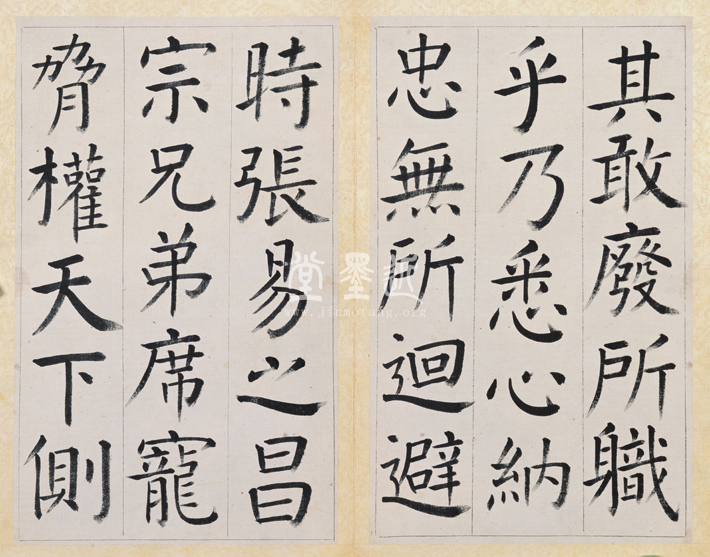 其敢廢所職
乎乃悉心納
忠無所迴避
時張易之昌
宗兄弟席寵
脅權天下側
近墨堂
www.jinmotang.org